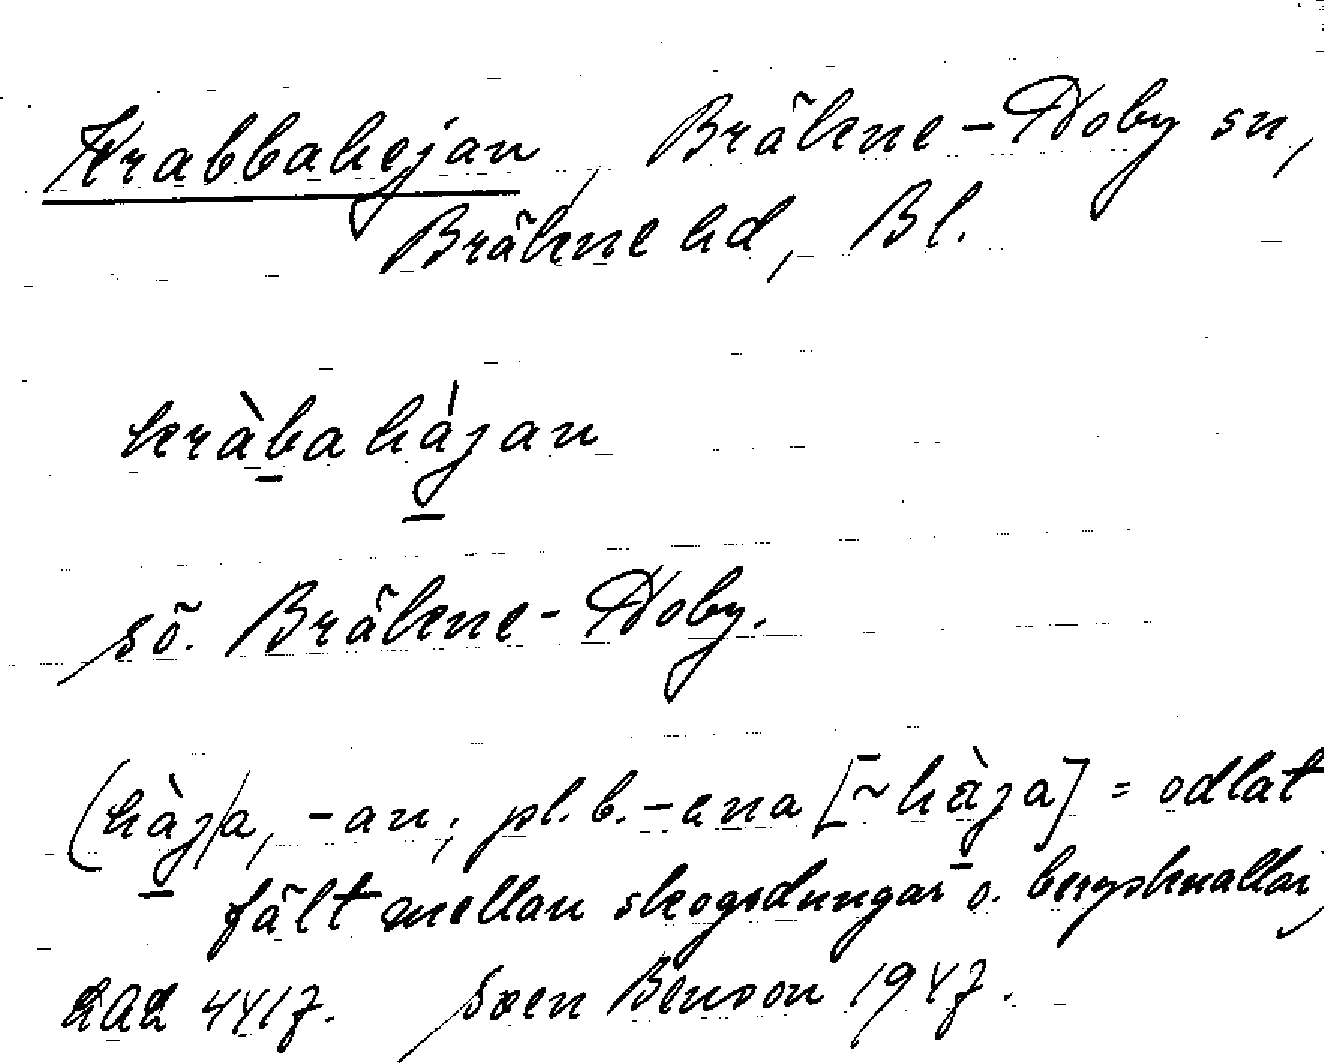 Krabbahejan, Bräkne-Hoby sn,
Bräkne hd, Bl.
kràbahàjan
sö. Bräkne-Hoby.
(hàj)a, -an; pl.b. -ena [~hàja] = odlat
fält mellan skogsdungar o. bergsknallar)
LAL 4417. Sven Benson 1947.